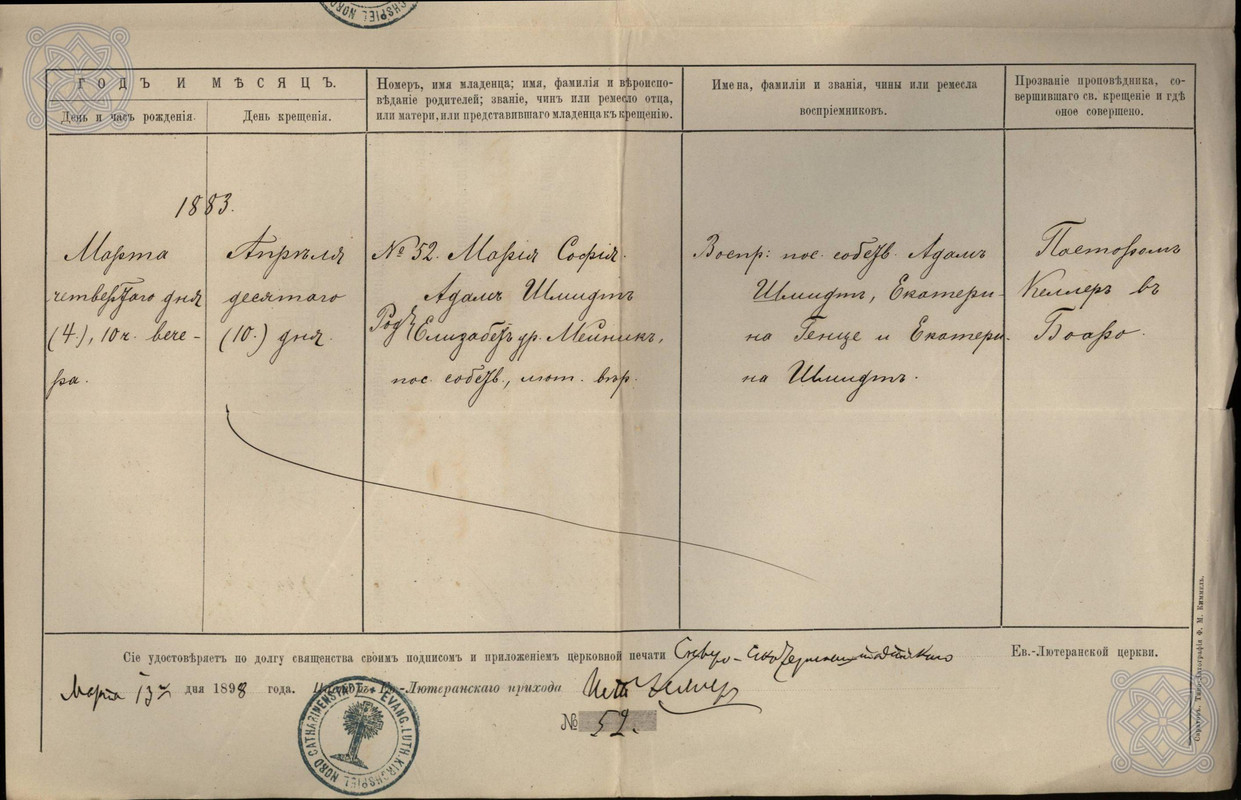 KIRCHSPIEL NORD
ГОДЪ И МѢСЯЦЪ.
День и часъ рожденія.
День крещенія.
Номеръ, имя младенца; имя, фамилія и вѣроиспо-
вѣданіе родителей; званіе, чинъ или ремесло отца,
или матери, или представившаго младенца къ крещенію.
Имена, фамиліи и званія, чины или ремесла
воспріемниковъ.
Прозваніе проповѣдника, со-
вершившаго св. крещеніе и гдѣ
оное совершено.
1883.
Марта
четвертаго дня
(4.), 10 ч. вече-
ра.
Апрѣля
десятаго
(10.) дня.
№ 52. Марія Софія.
Адамъ Шмидтъ
Род.
Елизабетъ ур. Мейникъ,
пос. собств., лют. вѣр.
Воспр: пос. собств. Адамъ
Шмидтъ, Екатери-
на Генце и Екатери-
на Шмидтъ.
Пасторомъ
Келлеръ въ
Боаро.
Сіе удостовѣряетъ по долгу священства своимъ подписомъ и приложеніемъ церковной печати Сѣверо- Ев.-Лютеранской церкви.
Марта 13 дня 1898 года. Ев.-Лютеранскаго прихода
№ 52.
NORD CATHARINENSTADT EVANG. LUTH. KIRCHSPIEL
Саратовъ. Типо-Литографія Ф. М. Киммель.